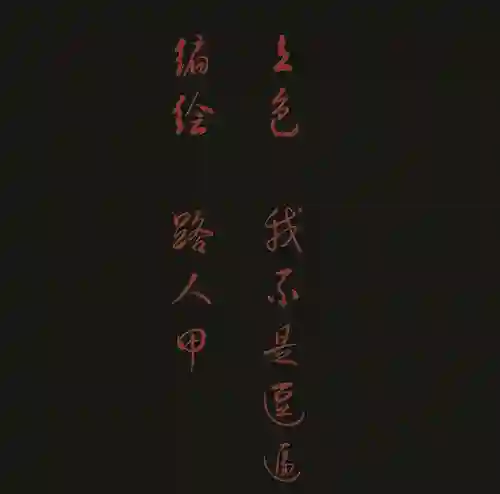 上色 我不是逗逼
编绘 路人甲